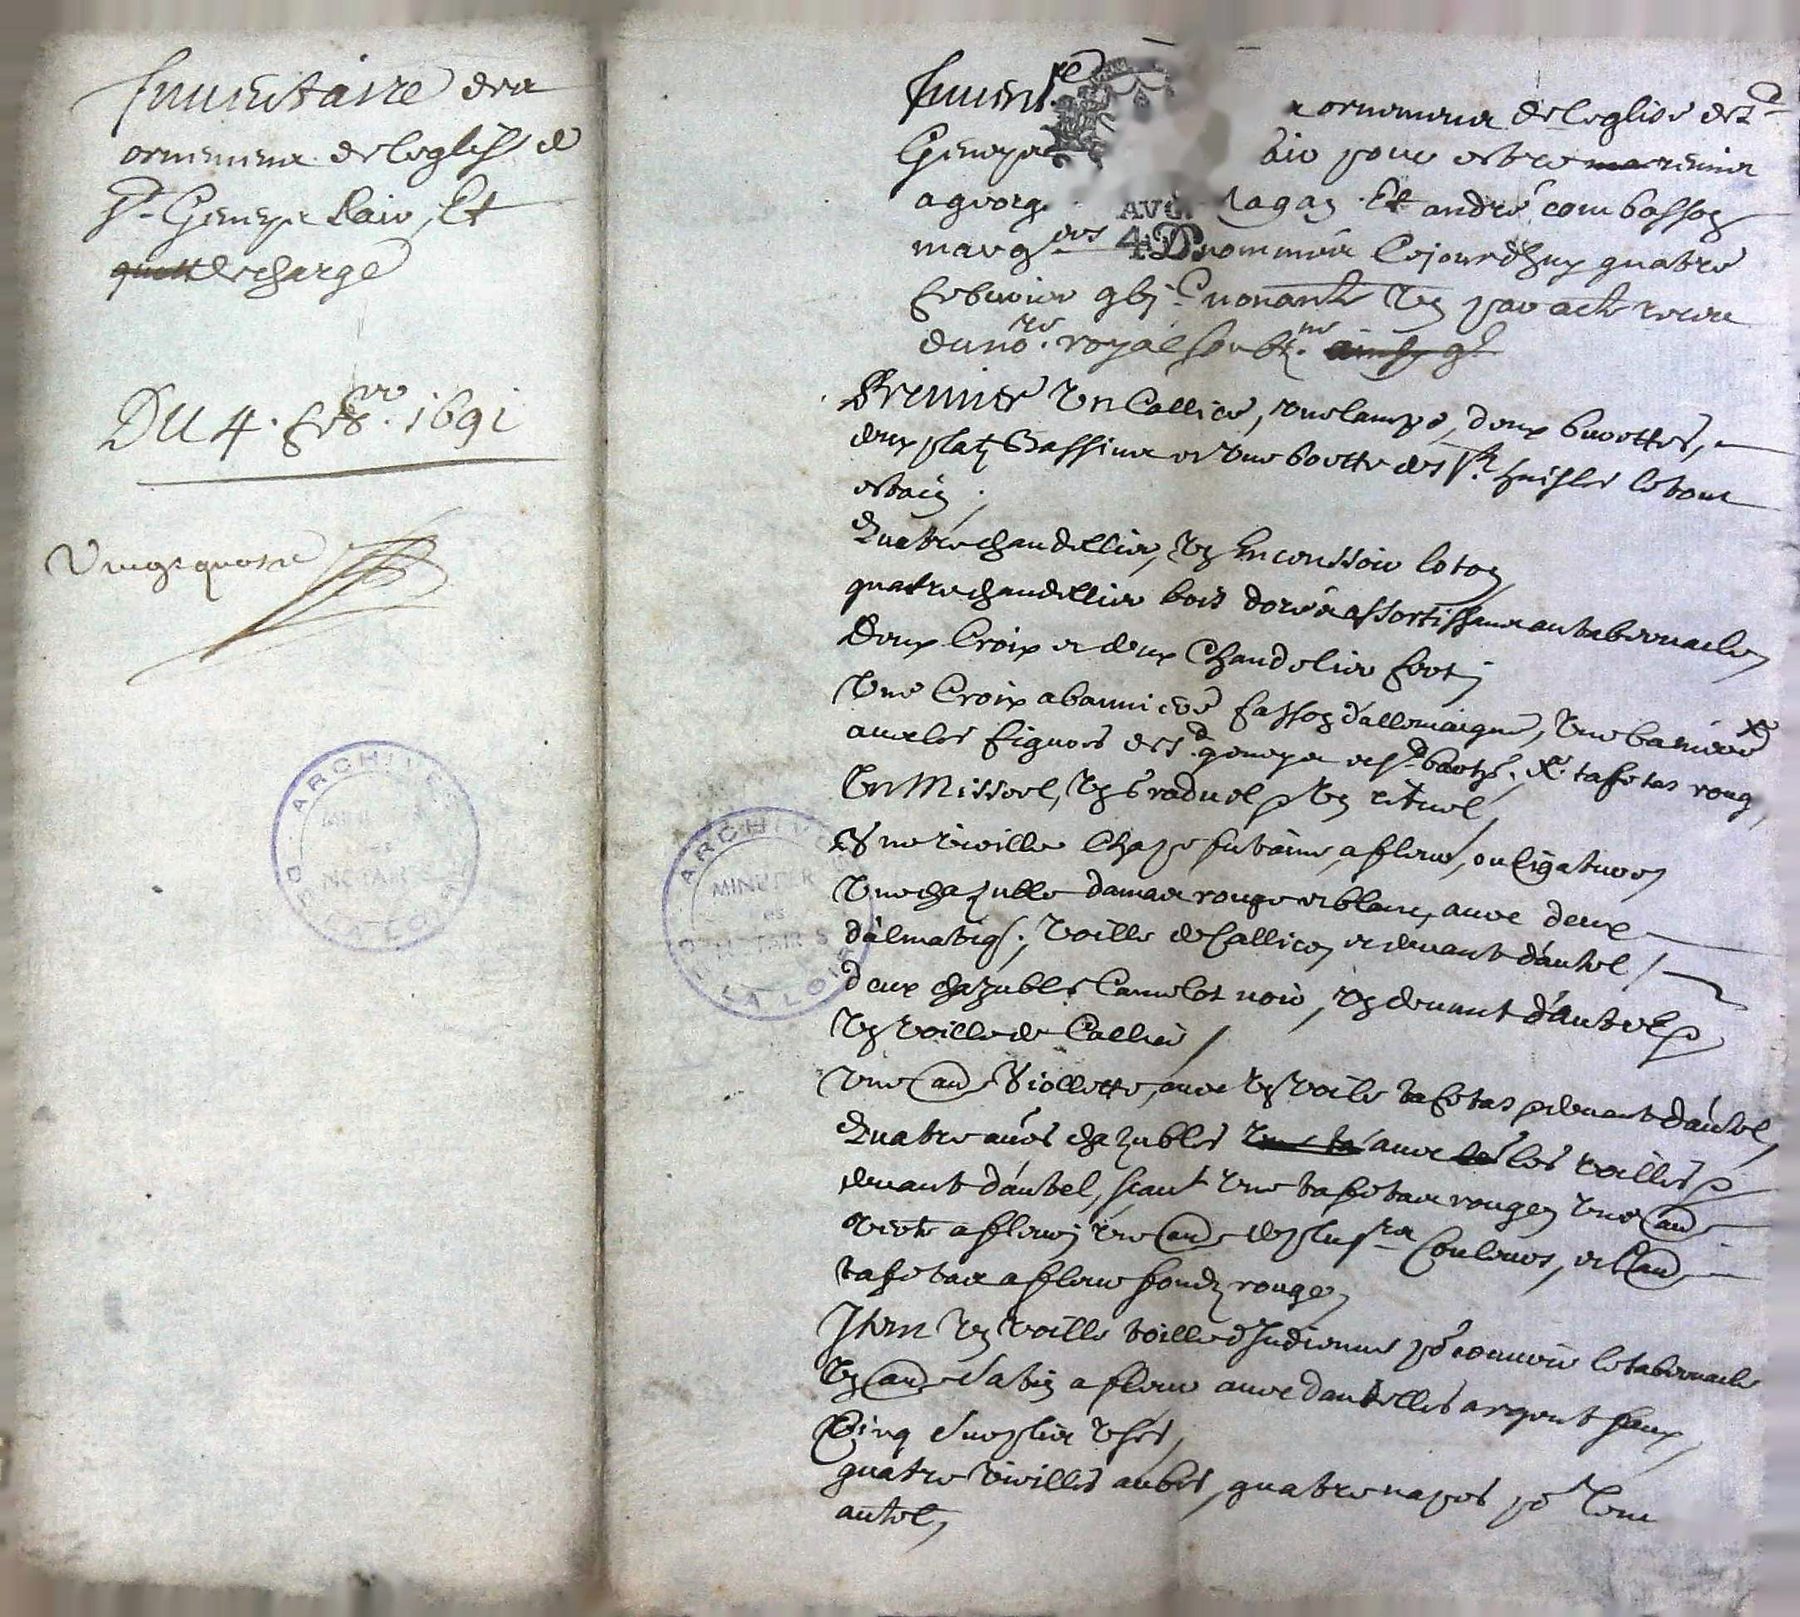 Inuentaire des
ornemens de leglisse de
St. Geneys Lair, Et
quitt descharge
DU 4. feb.er 1691
Vingt quatre
ARCHIVES
MINUTIER
es
NOTAIRES
DE LA LOIRE
ARCHIVES
MINUTIER
es
NOTAIRES
DE LA LOIRE
Inuent.re ornemens de leglise de St.
Geneys pour estre remis
a george Magan Et andré combasson
marg.ers nommés Cejourdhuy quatre
AVG.
4D
febvrier gbj.C nonante Un par acte receu
du no.re royal soubz.ne
Premier Un Callice, une lampe, deux buvettes,
deux platz bassins et une boette des St. huisles le tout
estain.
Quatre chandellier, Un Encenssoir loton
quatre chandellier bois dorés assortissans au tabernacle
Deux Croix et deux Chandelier
Une Croix a banniere fasson d'allemaigne, Une baniere
auec les figures de St. geneys et St. barth. taffetas rouge,
Un Missoel, Un Graduel Un rituel
Une vieille Chape futaine a fleurs, ou ligature
Une chazuble damas rouge et blanc, auec deux
dalmatiq., voille de Callice et deuant d'autel /
Deux chazubles Camelot noir, Un deuant d'autel
Un voille de Callice /
Une au.e Viollette, auec Un voile taffetas deuant d'autel,
Quatre au.es chazubles auec les voilles
deuant d'autel, scau.t Une taffetas rouge, Une au.e
verte a fleurs, Une au.e de plus.rs Couleurs, et l'au.e
taffetas a fleurs fondz rouge,
Item Un voille toille d'Indienne pr. couurir le tabernacle
Un au.e satin a fleurs auec dantelles argent faux,
Cinq surplis Uses,
quatre vieilles aubes, quatre napes pr. leur
autel,